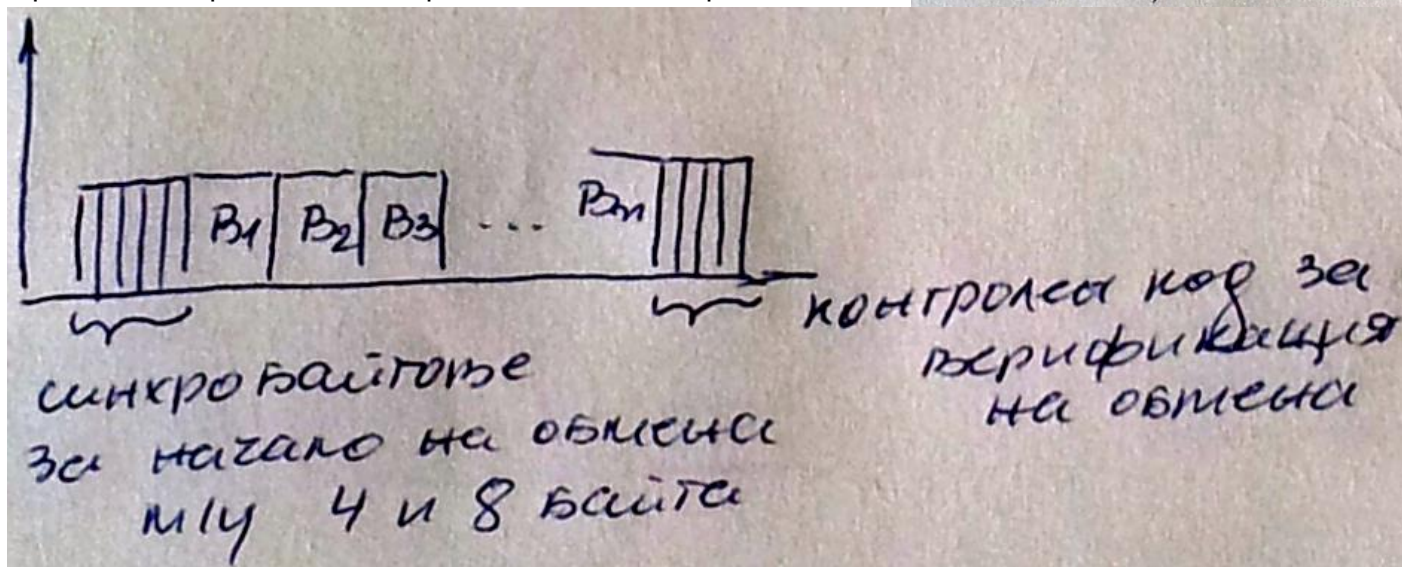 B1 B2 B3 ... Bn
синхробайтове
за начало на обмена
м/у 4 и 8 байта
контролен код за
верификация
на обмена